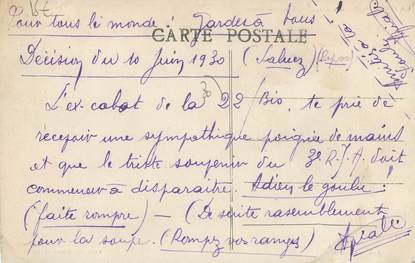 Pour tous le monde : Gardes à vous
CARTE POSTALE
Décision du 10 Juin 1930 (Saluez) (Repos)
L'ex-cabot de la 22 Bis, te prie de
recevoir une sympathique poignée de mains
et que le triste souvenir du 3e R.I.A. doit
commencer à disparaitre. Adieu le goulu :
(faite rompre) — (De suite rassemblement
pour la soupe. (Rompez vos ranges)